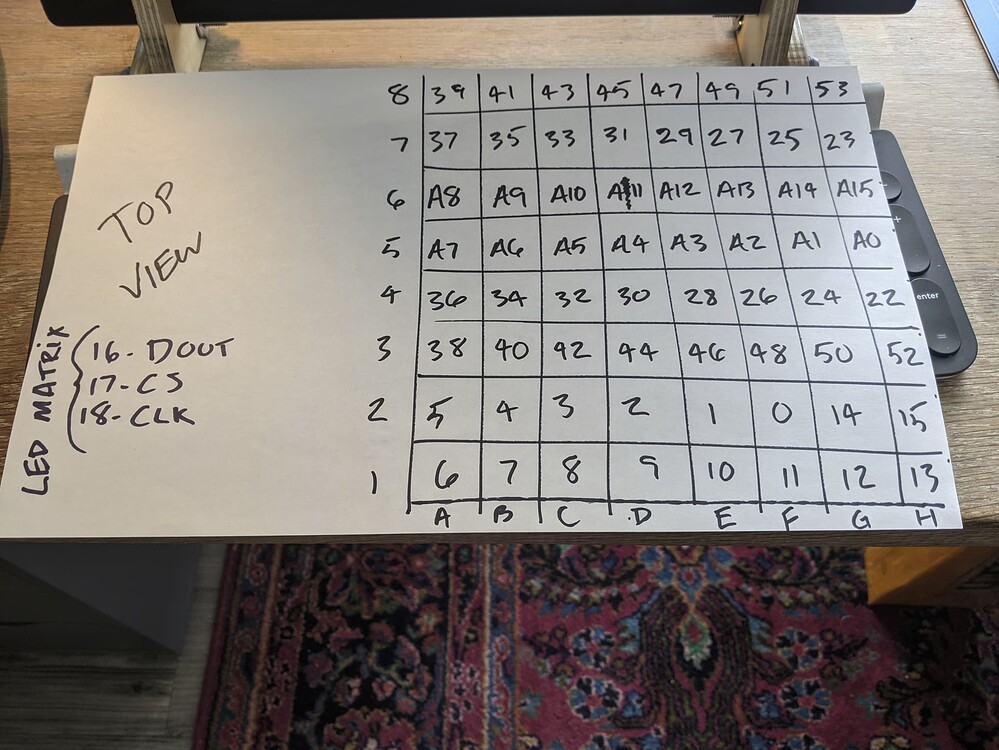 8 39 41 43 45 47 49 51 53
7 37 35 33 31 29 27 25 23
6 A8 A9 A10 A11 A12 A13 A14 A15
5 A7 A6 A5 A4 A3 A2 A1 A0
4 36 34 32 30 28 26 24 22
3 38 40 42 44 46 48 50 52
2 5 4 3 2 1 0 14 15
1 6 7 8 9 10 11 12 13
A B C D E F G H
TOP
VIEW
LED MATRIX
16- DOUT
17- CS
18- CLK
+
enter
=